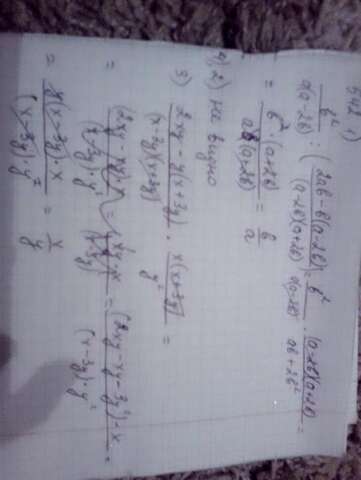 b²/a(a-2b) : (2ab-b(a-2b)/(a-2b)(a+2b)) = b²/a(a-2b) · (a-2b)(a+2b)/ab+2b² =
= b²·(a+2b)/ab(a+2b) = b/a
2) не видно
3) 2xy-y(x+3y)/(x-3y)(x+3y) · x(x+3y)/y² =
= = (2xy-xy-3y²)·x/(x-3y)·y² =
= y(x-3y)·x/(x-3y)y² = x/y